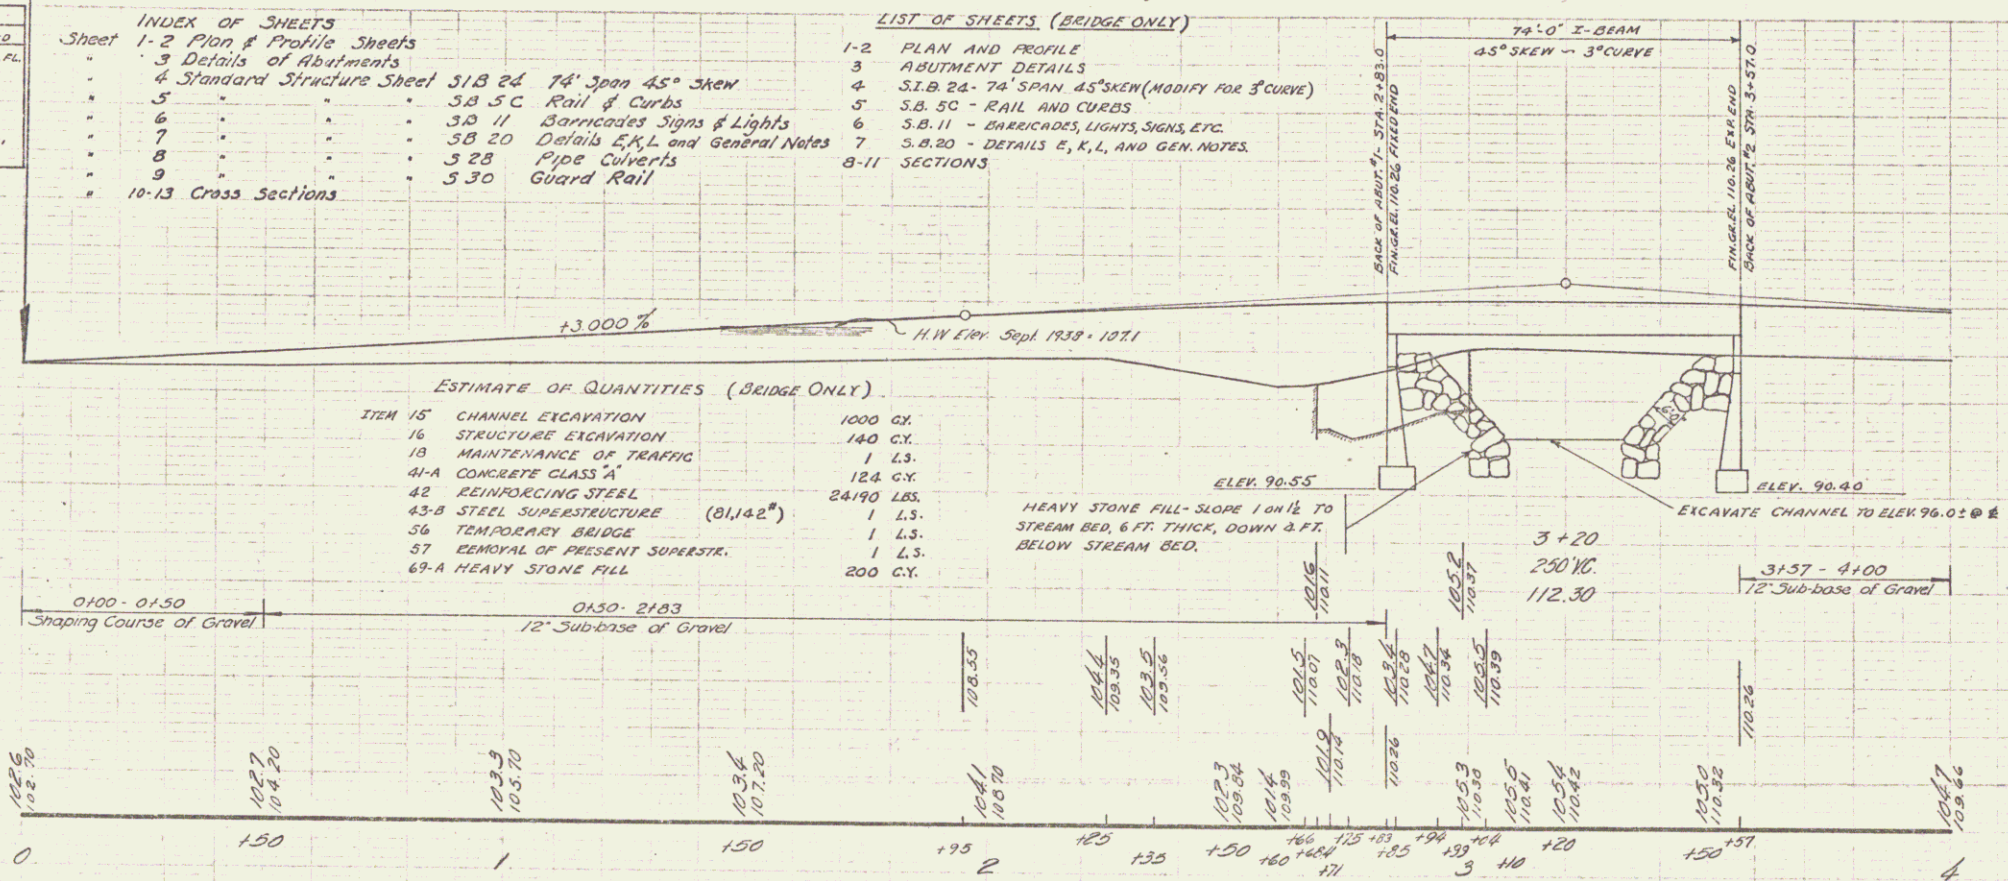 INDEX OF SHEETS
Sheet 1-2 Plan & Profile Sheets
" 3 Details of Abutments
4 Standard Structure Sheet SIB 24 74' Span 45° Skew
" 5 " " " SB 5C Rail & Curbs
" 6 " " " SB 11 Barricades Signs & Lights
" 7 " " " SB 20 Details E,K,L and General Notes
" 8 " " " S 28 Pipe Culverts
" 9 " " " S 30 Guard Rail
" 10-13 Cross Sections
LIST OF SHEETS (BRIDGE ONLY)
1-2 PLAN AND PROFILE
3 ABUTMENT DETAILS
4 S.I.B. 24- 74' SPAN 45° SKEW (MODIFY FOR 3° CURVE)
5 S.B. 5C - RAIL AND CURBS
6 S.B. 11 - BARRICADES, LIGHTS, SIGNS, ETC.
7 S.B. 20 - DETAILS E, K, L, AND GEN. NOTES.
8-11 SECTIONS
FL.
74'-0" I-BEAM
45° SKEW - 3° CURVE
BACK OF ABUT. #1- STA. 2+83.0
FIN.GR.EL. 110.26 FIXED END
FIN.GR.EL. 110.26 EXP. END
BACK OF ABUT. #2 STA. 3+57.0
+3.000 %
H.W Elev. Sept. 1938 = 107.1
ESTIMATE OF QUANTITIES (BRIDGE ONLY)
ITEM 15 CHANNEL EXCAVATION 1000 C.Y.
16 STRUCTURE EXCAVATION 140 C.Y.
18 MAINTENANCE OF TRAFFIC 1 L.S.
41-A CONCRETE CLASS "A" 124 C.Y.
42 REINFORCING STEEL 24190 LBS.
43-B STEEL SUPERSTRUCTURE (81,142#) 1 L.S.
56 TEMPORARY BRIDGE 1 L.S.
57 REMOVAL OF PRESENT SUPERSTR. 1 L.S.
69-A HEAVY STONE FILL 200 C.Y.
6'-0"
ELEV. 90.55
ELEV. 90.40
HEAVY STONE FILL- SLOPE 1 ON 1½ TO
STREAM BED, 6 FT. THICK, DOWN 4 FT.
BELOW STREAM BED.
EXCAVATE CHANNEL TO ELEV. 96.0± @ ℄
3+20
250' V.C.
112.30
0+00 - 0+50
Shaping Course of Gravel
0+50 - 2+83
12" Sub-base of Gravel
3+57 - 4+00
12" Sub-base of Gravel
101.6
110.11
105.2
110.37
108.55
104.4
109.35
103.5
109.56
101.5
110.07
102.3
110.18
103.4
110.28
104.7
110.34
105.5
110.39
110.26
101.9
110.14
110.26
102.6
102.70
102.7
104.20
103.3
105.70
103.4
107.20
104.1
108.70
102.3
109.84
101.4
109.99
105.3
110.38
105.5
110.41
105.4
110.42
105.0
110.32
104.7
109.66
0 +50 1 +50 +95 2 +25 +35 +50 +60 +66 +68.4 +71 +75 +83 +85 +94 +99 3 +04 +10 +20 +50 +57 4